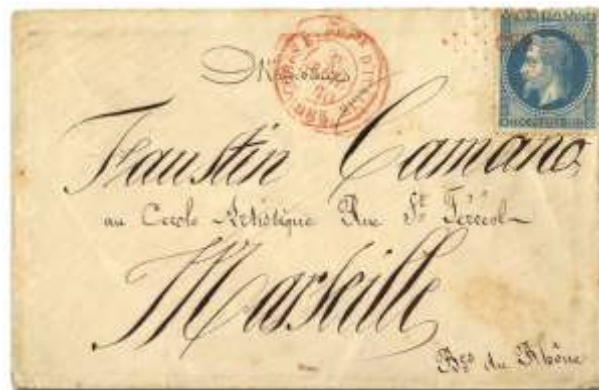 Monsieur
Faustin Camano
au Cercle Artistique Rue St. Ferréol
Marseille
Bes du Rhône